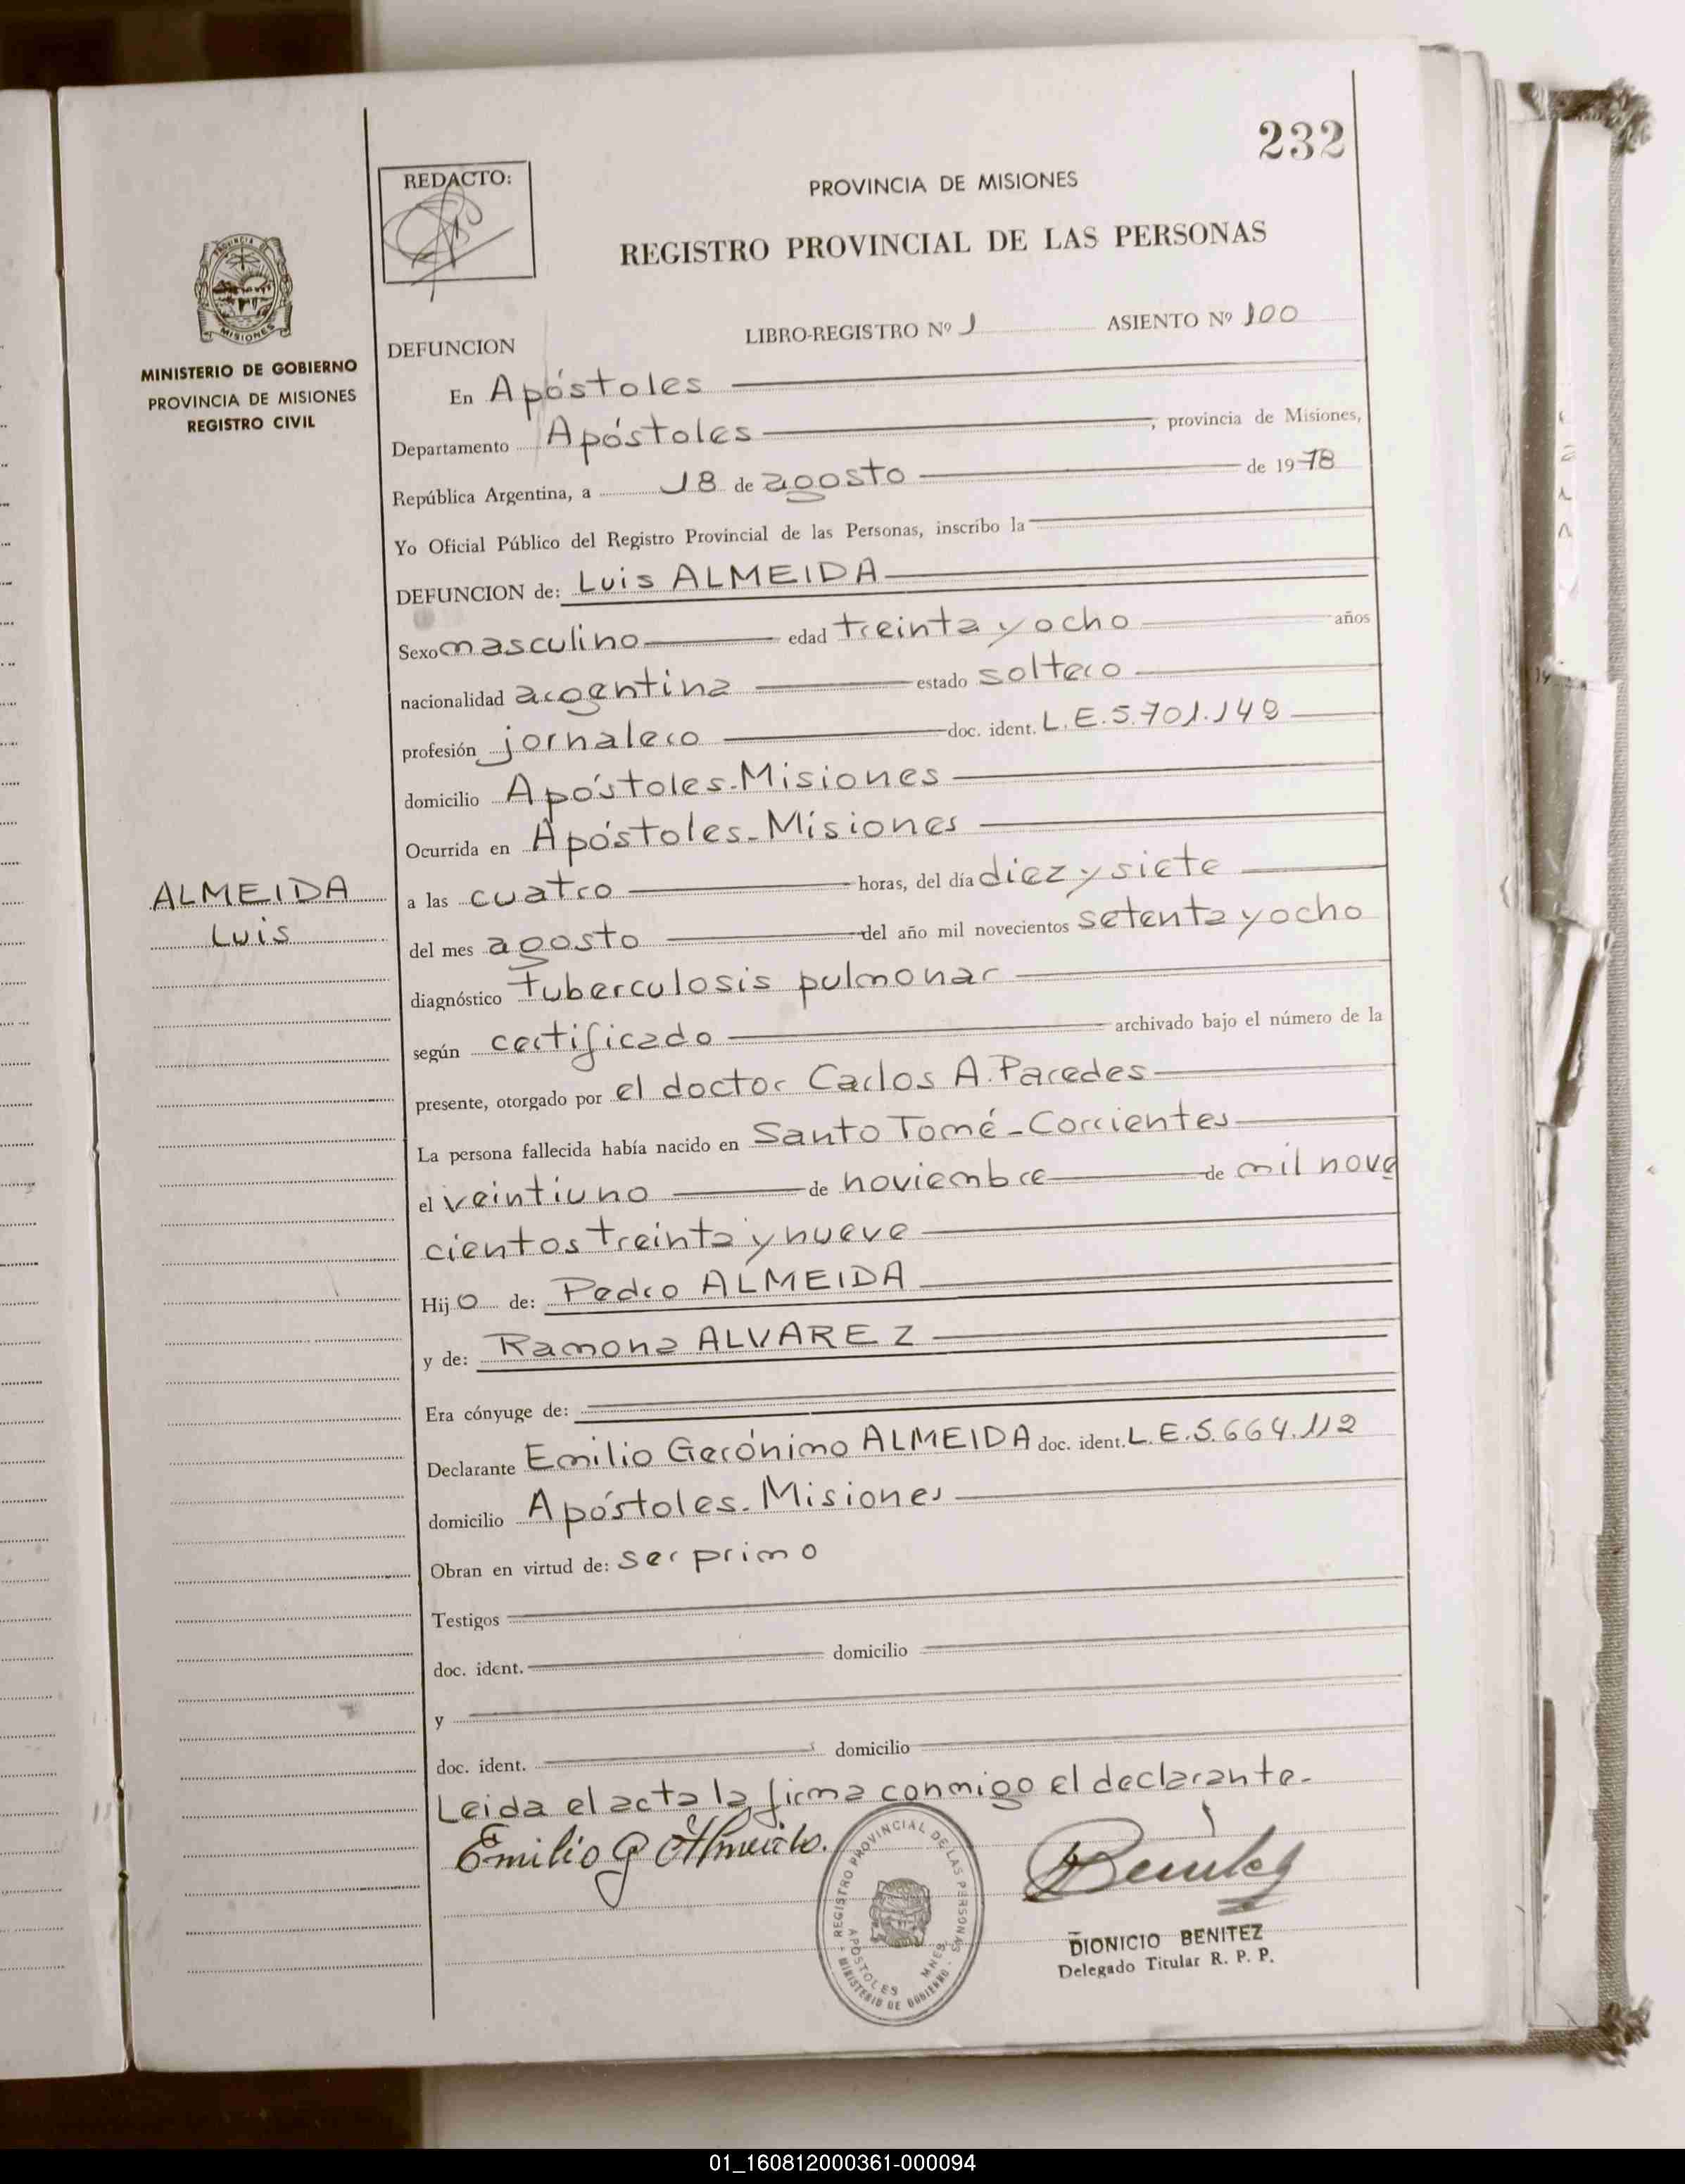 232
REDACTO:
PROVINCIA DE MISIONES
REGISTRO PROVINCIAL DE LAS PERSONAS
PROVINCIA DE
MISIONES
MINISTERIO DE GOBIERNO
PROVINCIA DE MISIONES
REGISTRO CIVIL
DEFUNCION LIBRO-REGISTRO Nº 1 ASIENTO Nº 100
En Apóstoles
Departamento Apóstoles, provincia de Misiones,
República Argentina, a 18 de agosto de 1978
Yo Oficial Público del Registro Provincial de las Personas, inscribo la
DEFUNCION de: Luis ALMEIDA
Sexo masculino edad treinta y ocho años
nacionalidad argentina estado soltero
profesión jornalero doc. ident. L.E.5.701.149
domicilio Apóstoles-Misiones
Ocurrida en Apóstoles-Misiones
ALMEIDA
Luis
a las cuatro horas, del día diez y siete
del mes agosto del año mil novecientos setenta y ocho
diagnóstico tuberculosis pulmonar
según certificado archivado bajo el número de la
presente, otorgado por el doctor Carlos A. Paredes
La persona fallecida había nacido en Santo Tomé-Corrientes
el veintiuno de noviembre de mil nove
cientos treinta y nueve
Hijo de: Pedro ALMEIDA
y de: Ramona ALVAREZ
Era cónyuge de:
Declarante Emilio Gerónimo ALMEIDA doc. ident. L.E.5.664.112
domicilio Apóstoles-Misiones
Obran en virtud de: ser primo
Testigos
doc. ident. domicilio
y
doc. ident. domicilio
Leida el acta la firma conmigo el declarante.
Emilio G Almeida.
Benitez
REGISTRO PROVINCIAL DE LAS PERSONAS
APOSTOLES MNES
MINISTERIO DE GOBIERNO
DIONICIO BENITEZ
Delegado Titular R. P. P.
01_160812000361-000094